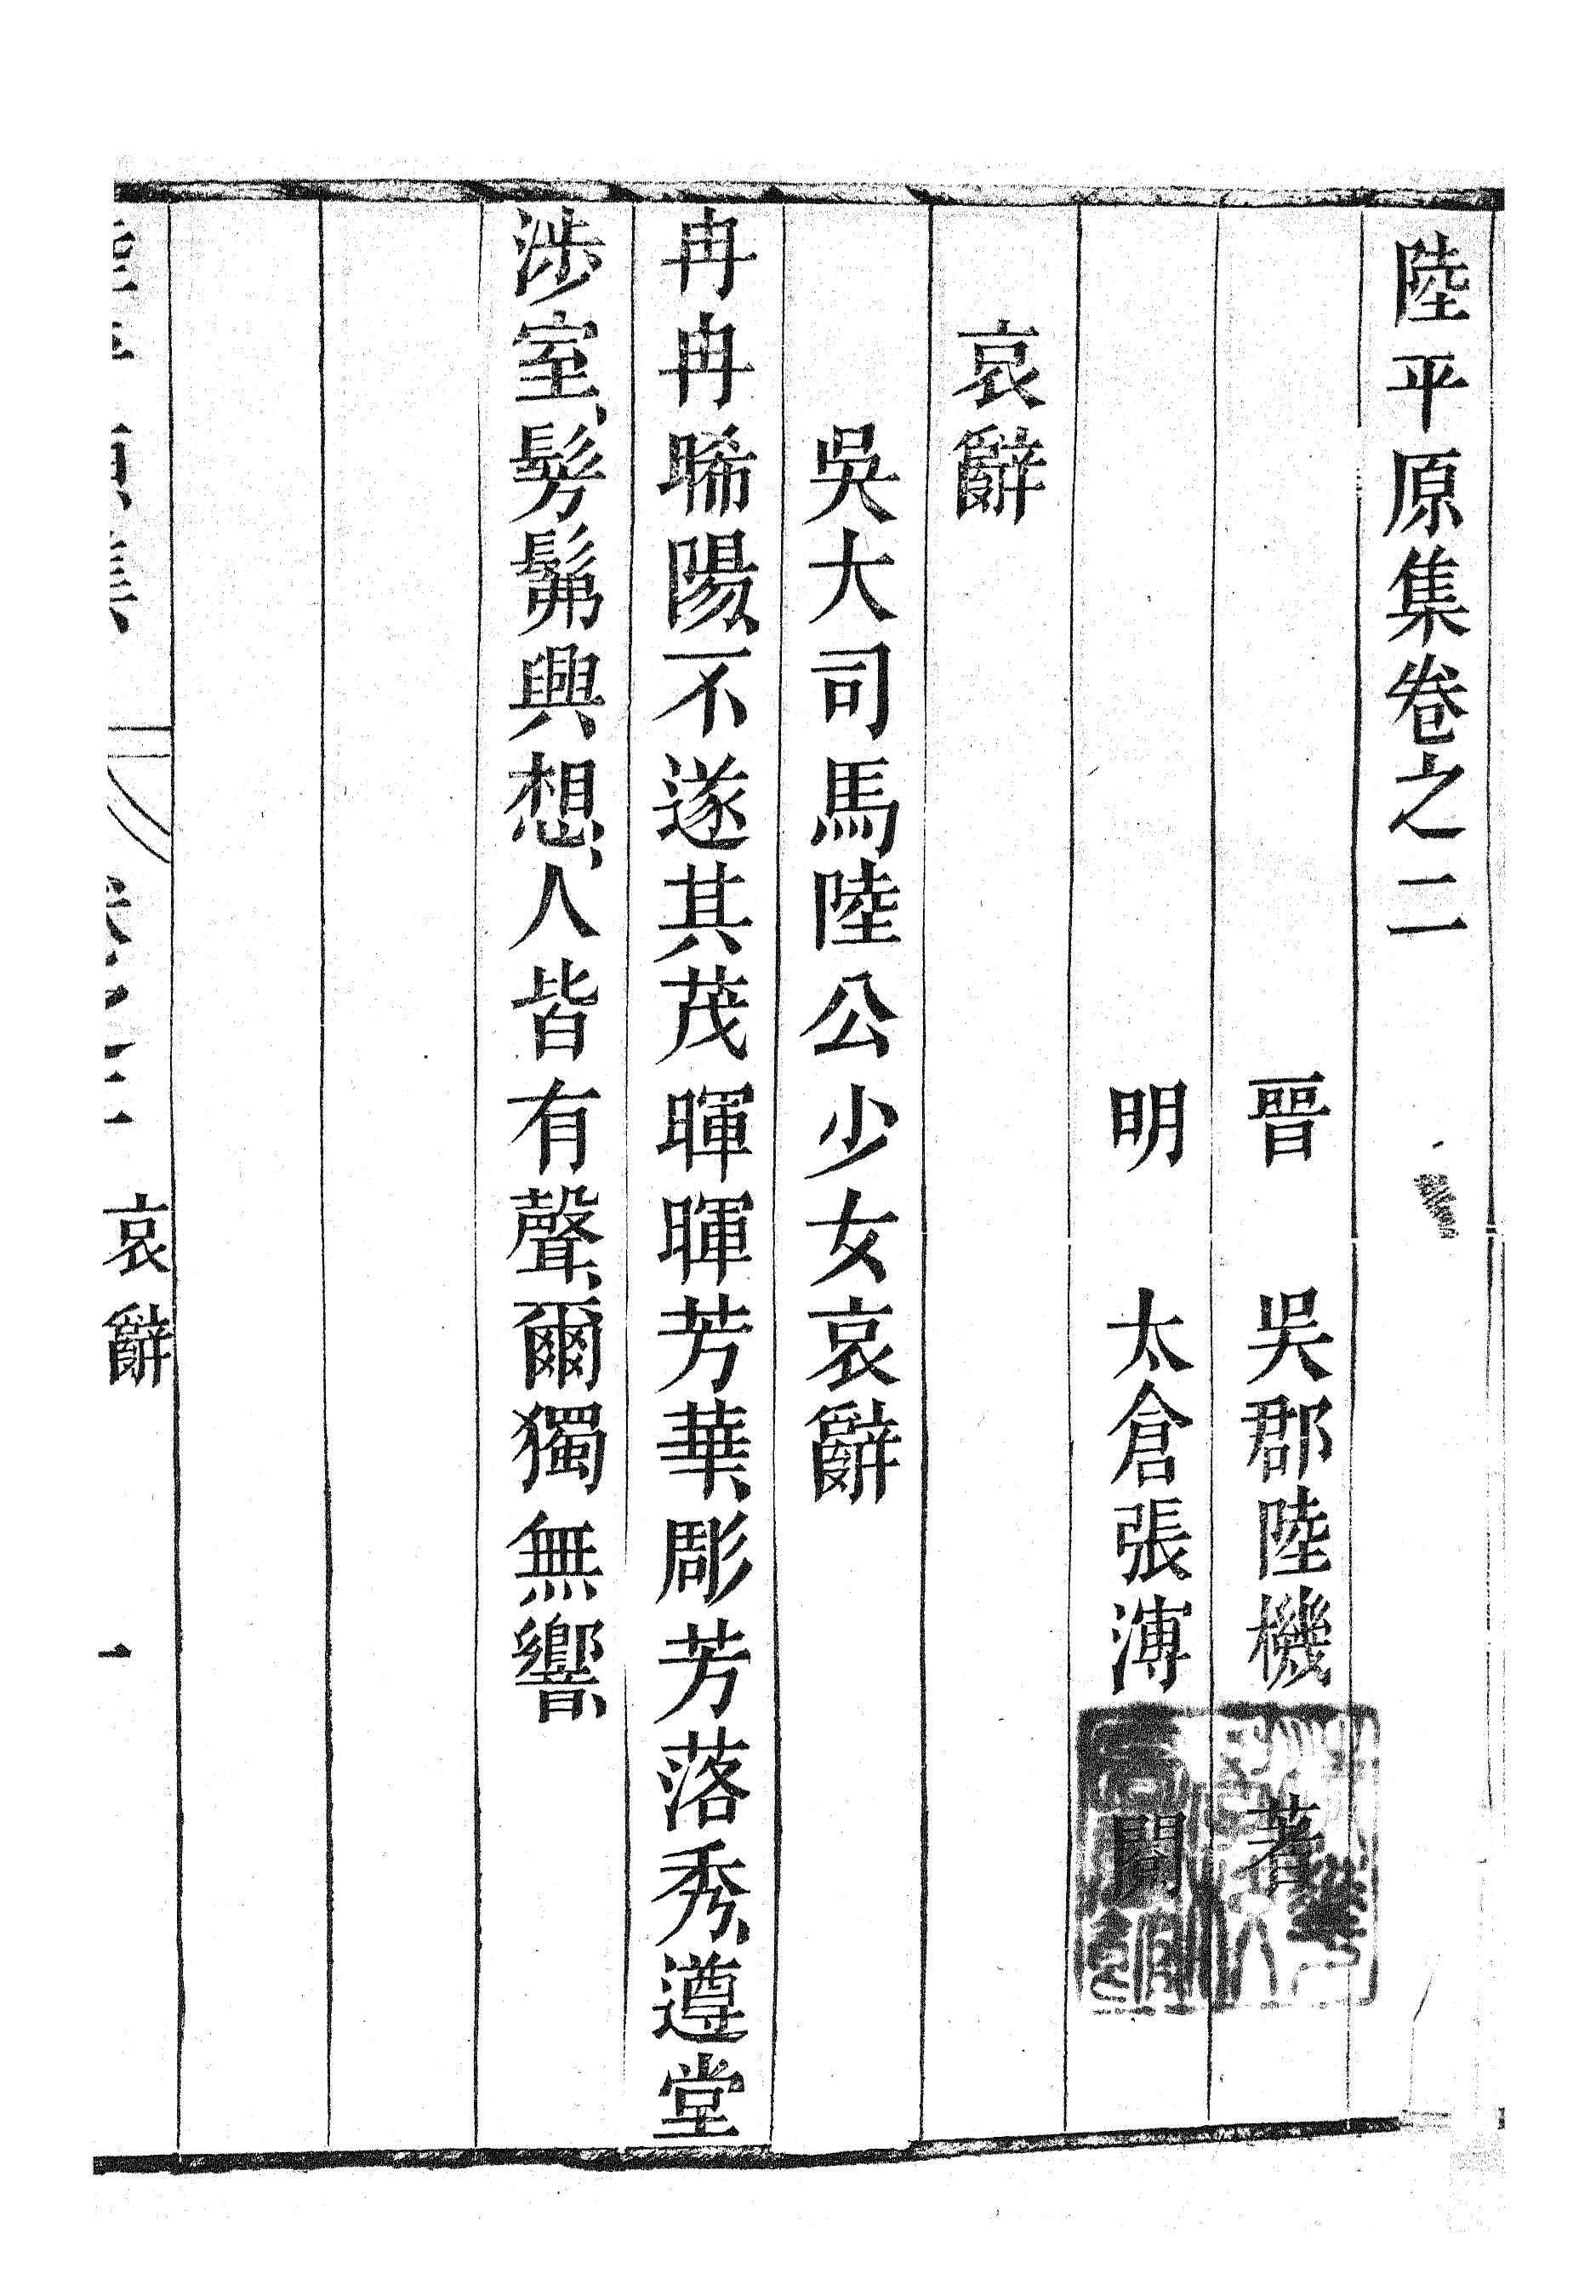 陸平原集卷之二
晉　吳郡陸機　著
明　太倉張溥　閱
哀辭
吳大司馬陸公少女哀辭
冉冉晞陽、不遂其茂、暉暉芳華、彫芳落秀、遵堂
涉室、髣髴興想、人皆有聲、爾獨無響、
陸平原集　卷之二　哀辭　一